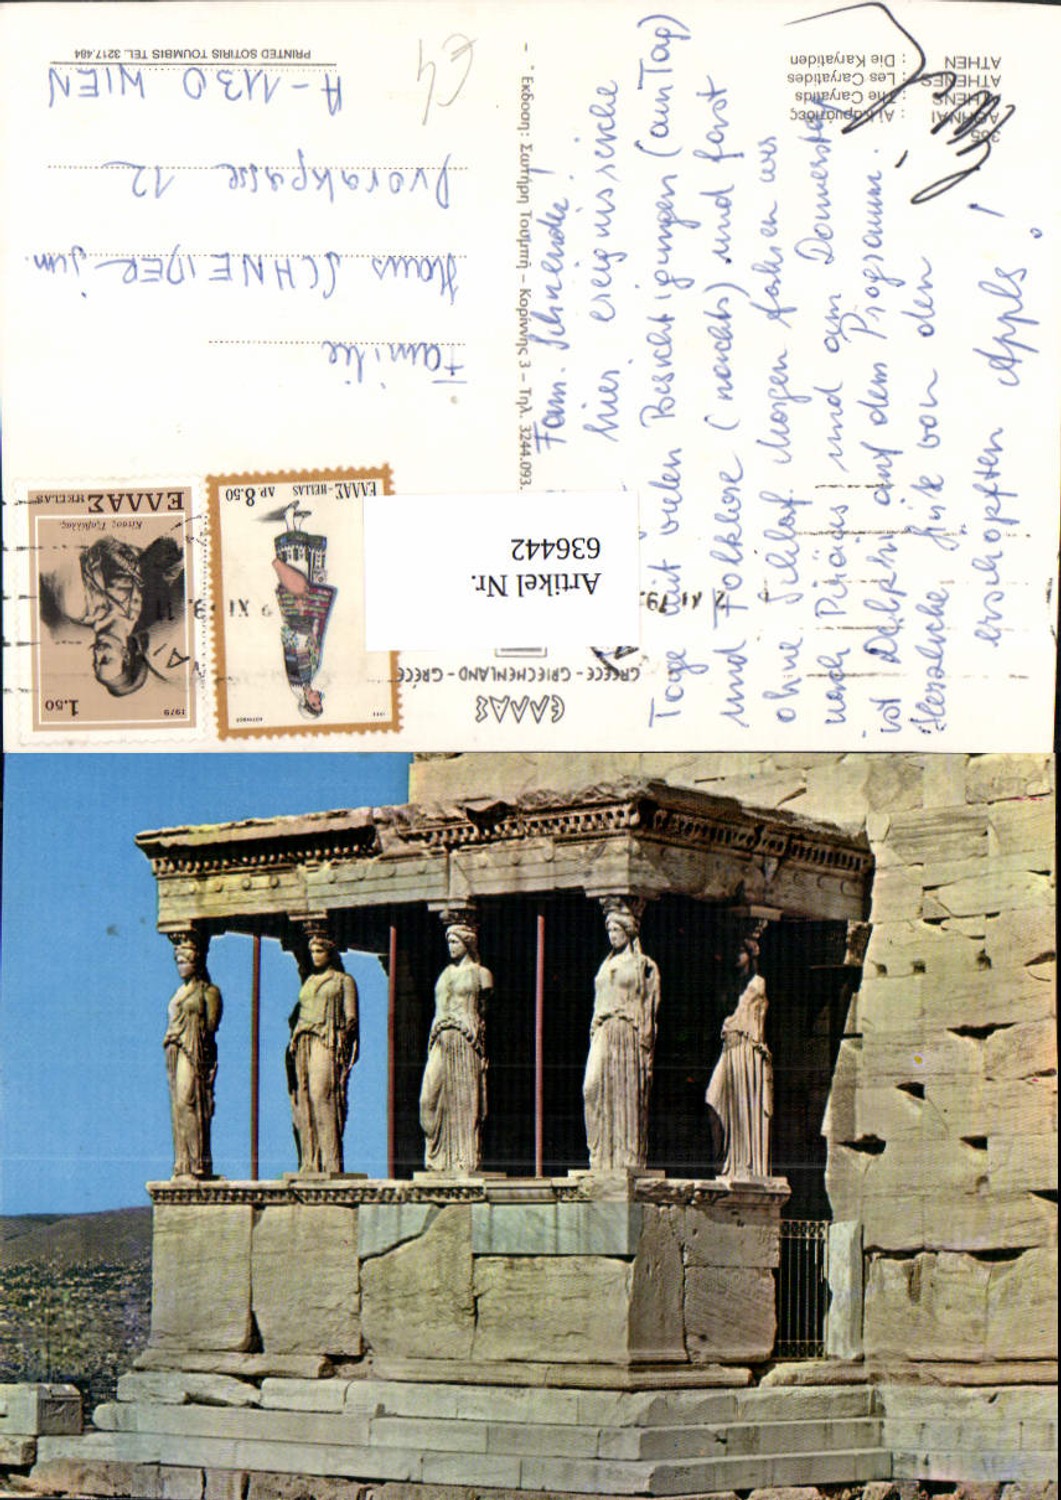 365
ΑΘΗΝΑΙ : Αἱ Καρυάτιδες
ATHENS : The Caryatids
ATHENES : Les Caryatides
ATHEN : Die Karyatiden
Fam. Schneider!
hier ereignisreiche
Tage mit vielen Besichtigungen (am Tag)
und Folklore (nachts) und fast
ohne Schlaf. Morgen fahren wir
nach Piräus und am Donnerstag
ist Delphi auf dem Programm.
Herzliche Grüße von den
erschöpften Appls!
Ἔκδοση: Σωτήρη Τουμπῆ – Κορίννης 3 – Τηλ. 3244.093.
ΕΛΛΑΣ
GREECE - GRIECHENLAND - GRÈCE
Artikel Nr.
636442
ΕΛΛΑΣ-HELLAS ΔΡ. 8.50
1979
1.50
ΕΛΛΑΣ HELLAS
Familie
Hans SCHNEIDER jun.
Dvorakgasse 12
A-1130 WIEN
€4
PRINTED SOTIRIS TOUMBIS TEL. 3217.484